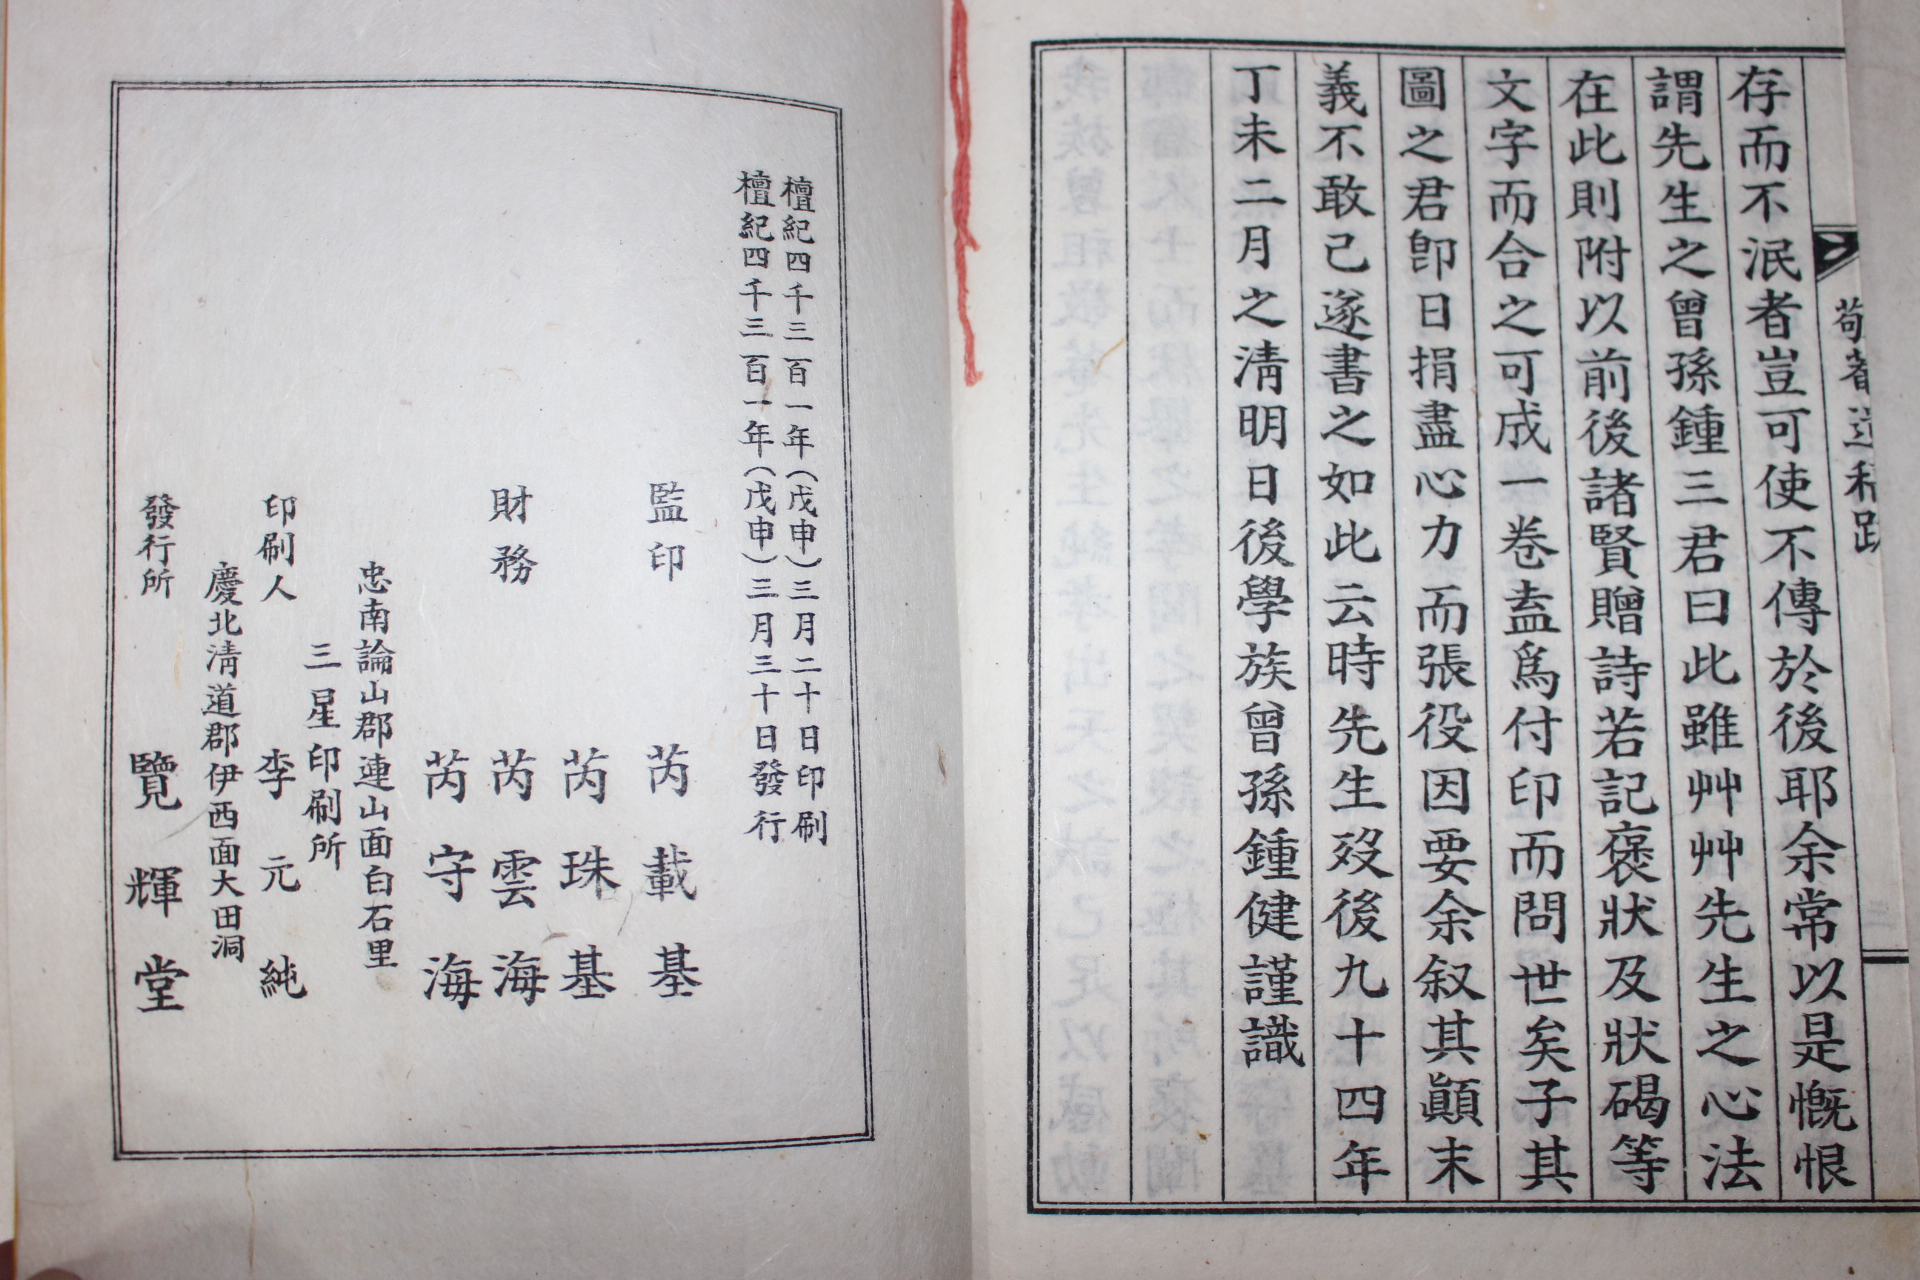 存而不泯者豈可使不傳於後耶余常以是慨恨
謂先生之曾孫鍾三君曰此雖艸艸先生之心法
在此則附以前後諸賢贈詩若記褒狀及狀碣等
文字而合之可成一卷盍爲付印而問世矣子其
圖之君卽日捐盡心力而張役因要余叙其顚末
義不敢已遂書之如此云時先生歿後九十四年
丁未二月之淸明日後學族曾孫鍾健謹識
檀紀四千三百一年(戊申)三月二十日印刷
檀紀四千三百一年(戊申)三月三十日發行
監印 芮載基
芮珠基
財務 芮雲海
芮守海
忠南論山郡連山面白石里
三星印刷所
印刷人 李元純
慶北淸道郡伊西面大田洞
發行所 覽輝堂